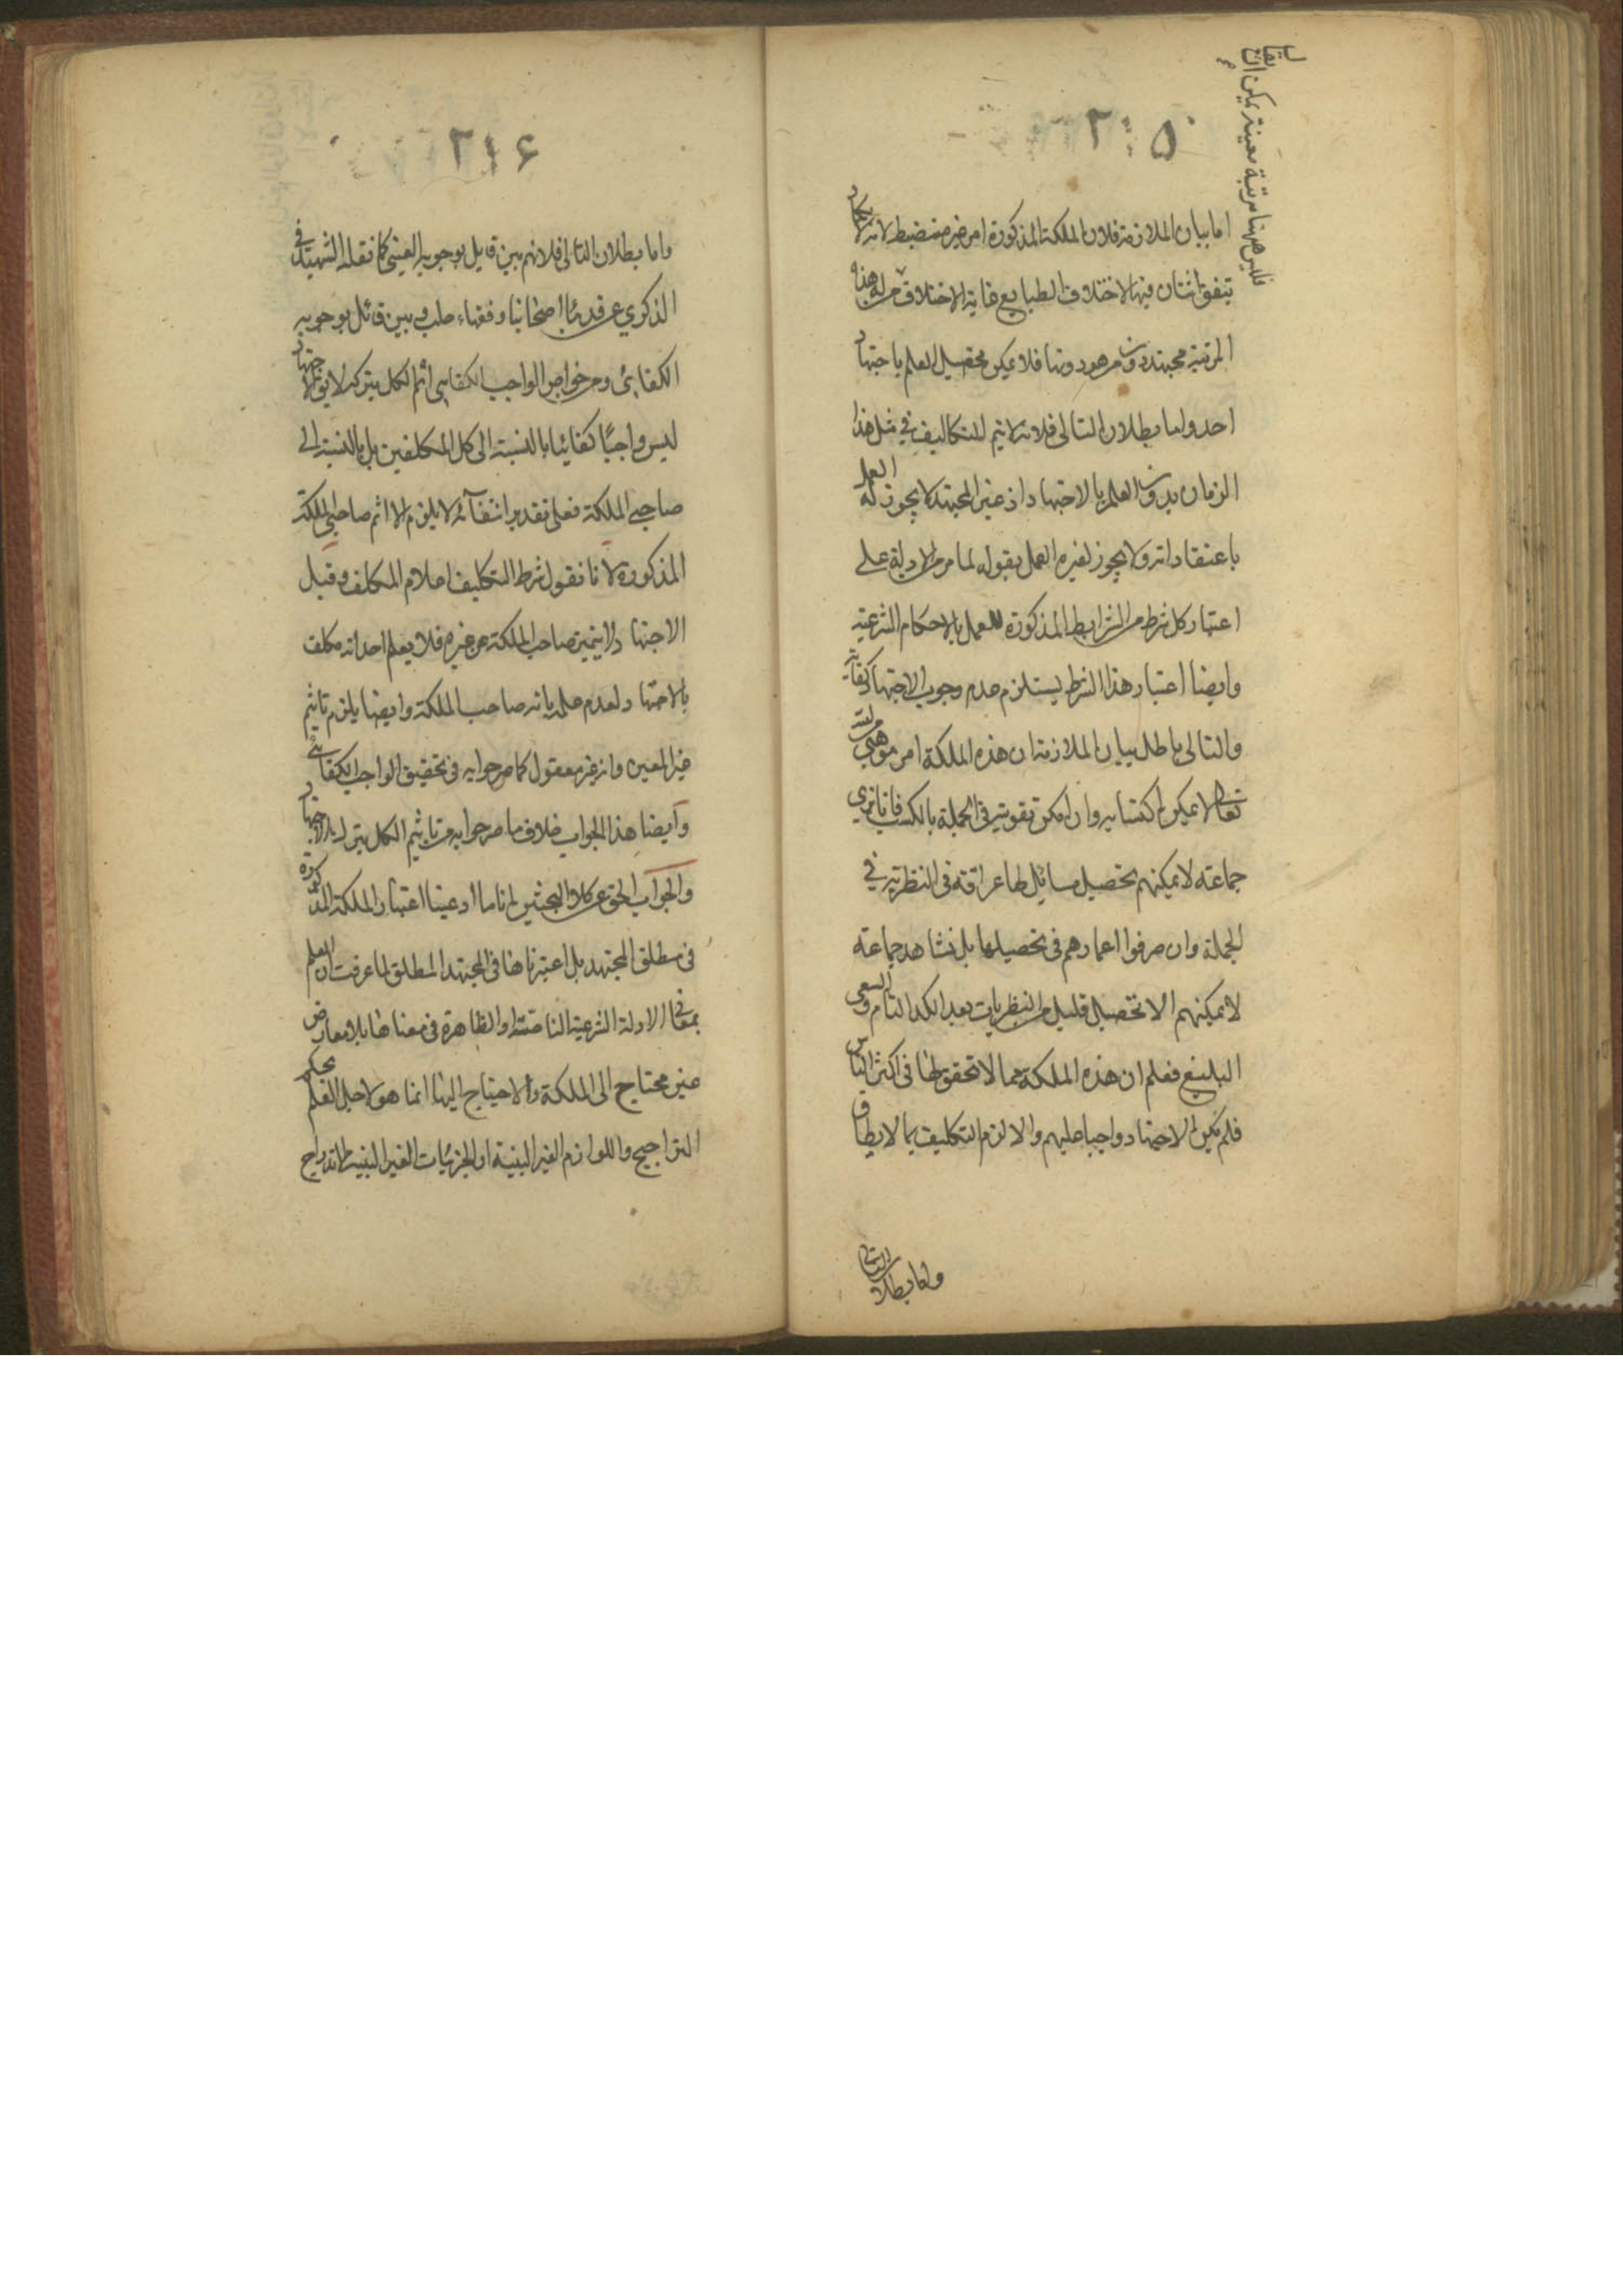 ٢١٥
فليس ههنا مرتبة معينة يمكن ان يقال
اما بيان الملازمة فلان الملكة المذكورة امر غير منضبط لانه لا يكاد
يتفق اثنان فيها لاختلاف الطبايع غاية الاختلاف من له هذه
المرتبة مجتهد دون من هو دونها فلا يمكن تحصيل العلم باجتهاد
احد واما بطلان التالى فلانه لا يتم للتكاليف في مثل هذا
الزمان بدون العلم بالاجتهاد اذ غير المجتهد لا يجوز له العمل
باعتقاداته ولا يجوز لغيره العمل بقوله لما مر من الادلة على
اعتبار كل شرط من الشرايط المذكورة للعمل بالاحكام الشرعية
وايضا اعتبار هذا الشرط يستلزم عدم وجوب الاجتهاد كفاية
والتالى باطل بيان الملازمة ان هذه الملكة امر موهبى من الله
تعالى لا يمكن اكتسابه وان امكن تقويته في الجملة بالكسب فانا نرى
جماعة لا يمكنهم تحصيل مسائل لها عراقة في النظرية في
الجملة وان صرفوا اعمارهم في تحصيلها بل نشاهد جماعة
لا يمكنهم الا تحصيل قليل من النظريات بعد الكد التام والسعى
البليغ فعلم ان هذه الملكة مما لا تحقق لها في اكثر الناس
فلم يكن الاجتهاد واجبا عليهم والا لزم التكليف بما لا يطاق
واما بطلان التالى
٢١۶
واما بطلان التالى فلانهم بين قايل بوجوبه العينى كما نقله الشهيد في
الذكرى عن قدماء اصحابنا وفقهاء حلب وبين قائل بوجوبه
الكفائى ومن خواص الواجب الكفايى اثم الكل بتركه لا يق الاجتهاد
ليس واجبًا كفائيا بالنسبة الى كل المكلفين بل بالنسبة الى
صاحبى الملكة فعلى تقدير انتفآئه لا يلزم الا اثم صاحبى الملكة
المذكورة لانا نقول شرط التكليف اعلام المكلف وقبل
الاجتهاد لا يتميز صاحب الملكة عن غيره فلا يعلم احد انه مكلف
بالاجتهاد لعدم علمه بانه صاحب الملكة وايضا يلزم تاثيم
غير المعين وانه غير معقول كما صرحوا به في تحقيق الواجب الكفائى
وايضا هذا الجواب خلاف ما صرحوا به من تاثيم الكل بترك الاجتهاد
والجواب الحق عن كلا البحثين انا ما ادعينا اعتبار الملكة المذكورة
في مطلق المجتهد بل اعتبرناها في المجتهد المطلق لما عرفت ان العلم
بمعانى الادلة الشرعية الناصة او الظاهرة في معناها بلا معارض
غير محتاج الى الملكة والاحتياج اليها انما هو لاجل العلم بحكم
التراجيح واللوازم الغير البينة او الجزئيات الغير البينة الاندراج